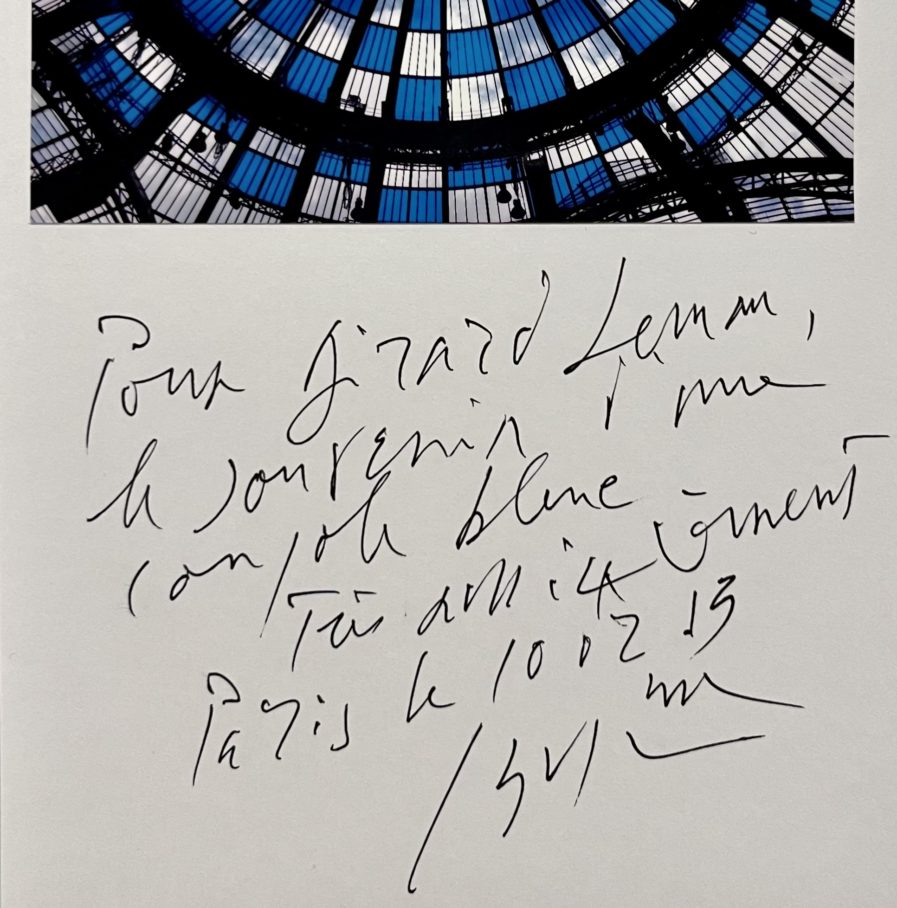 Pour Gérard
le souvenir d'une
coupole bleue
Très amicalement
Paris le 10 02 13